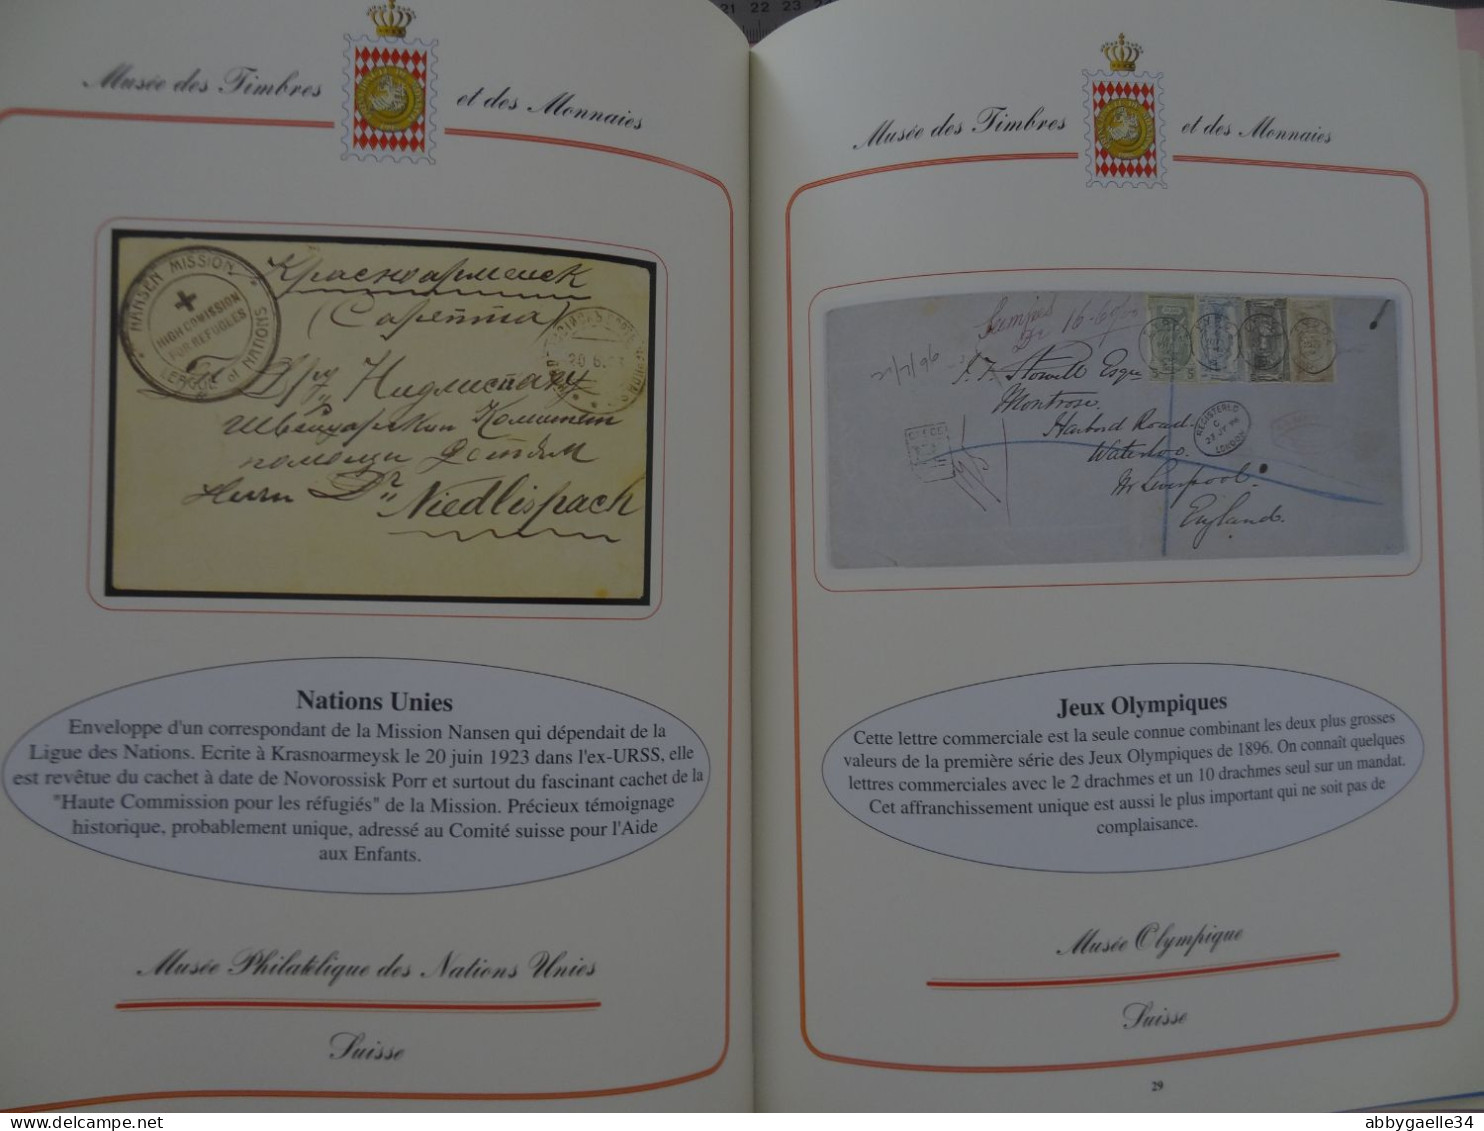 21 22 23
Musée des Timbres et des Monnaies
NANSEN MISSION
HIGH COMISSION
FOR REFUGLES
LEAGUE of NATIONS
Красноармейск
(Сарепта)
20.6.23
Нидлиспаху
Швейцарский Комитет
помощи Детям
Herrn Dr. Niedlispach
Nations Unies
Enveloppe d'un correspondant de la Mission Nansen qui dépendait de la
Ligue des Nations. Ecrite à Krasnoarmeysk le 20 juin 1923 dans l'ex-URSS, elle
est revêtue du cachet à date de Novorossisk Porr et surtout du fascinant cachet de la
"Haute Commission pour les réfugiés" de la Mission. Précieux témoignage
historique, probablement unique, adressé au Comité suisse pour l'Aide
aux Enfants.
Musée Philatélique des Nations Unies
Suisse
Musée des Timbres et des Monnaies
Stamps
16-6
J. F. Stowell Esqre
Montrose.
Harbord Road.
Waterloo.
Nr Liverpool.
England.
REGISTERED
C
LONDON
Jeux Olympiques
Cette lettre commerciale est la seule connue combinant les deux plus grosses
valeurs de la première série des Jeux Olympiques de 1896. On connaît quelques
lettres commerciales avec le 2 drachmes et un 10 drachmes seul sur un mandat.
Cet affranchissement unique est aussi le plus important qui ne soit pas de
complaisance.
Musée Olympique
Suisse
29
abbygaelle34